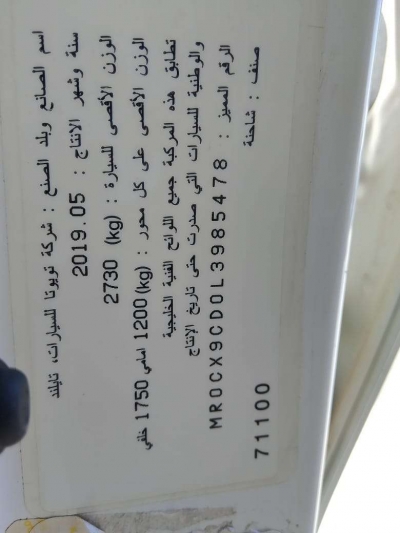 اسم الصانع وبلد الصنع : شركة تويوتا للسيارات، تايلند
سنة وشهر الانتاج : 2019.05
الوزن الأقصى للسيارة : 2730 (kg)
الوزن الأقصى على كل محور : 1200(kg) امامي 1750 خلفي
تطابق هذه المركبة جميع اللوائح الفنية الخليجية
والوطنية للسيارات التي صدرت حتى تاريخ الإنتاج
الرقم المميز : MR0CX9CD0L3985478
صنف : شاحنة
71100